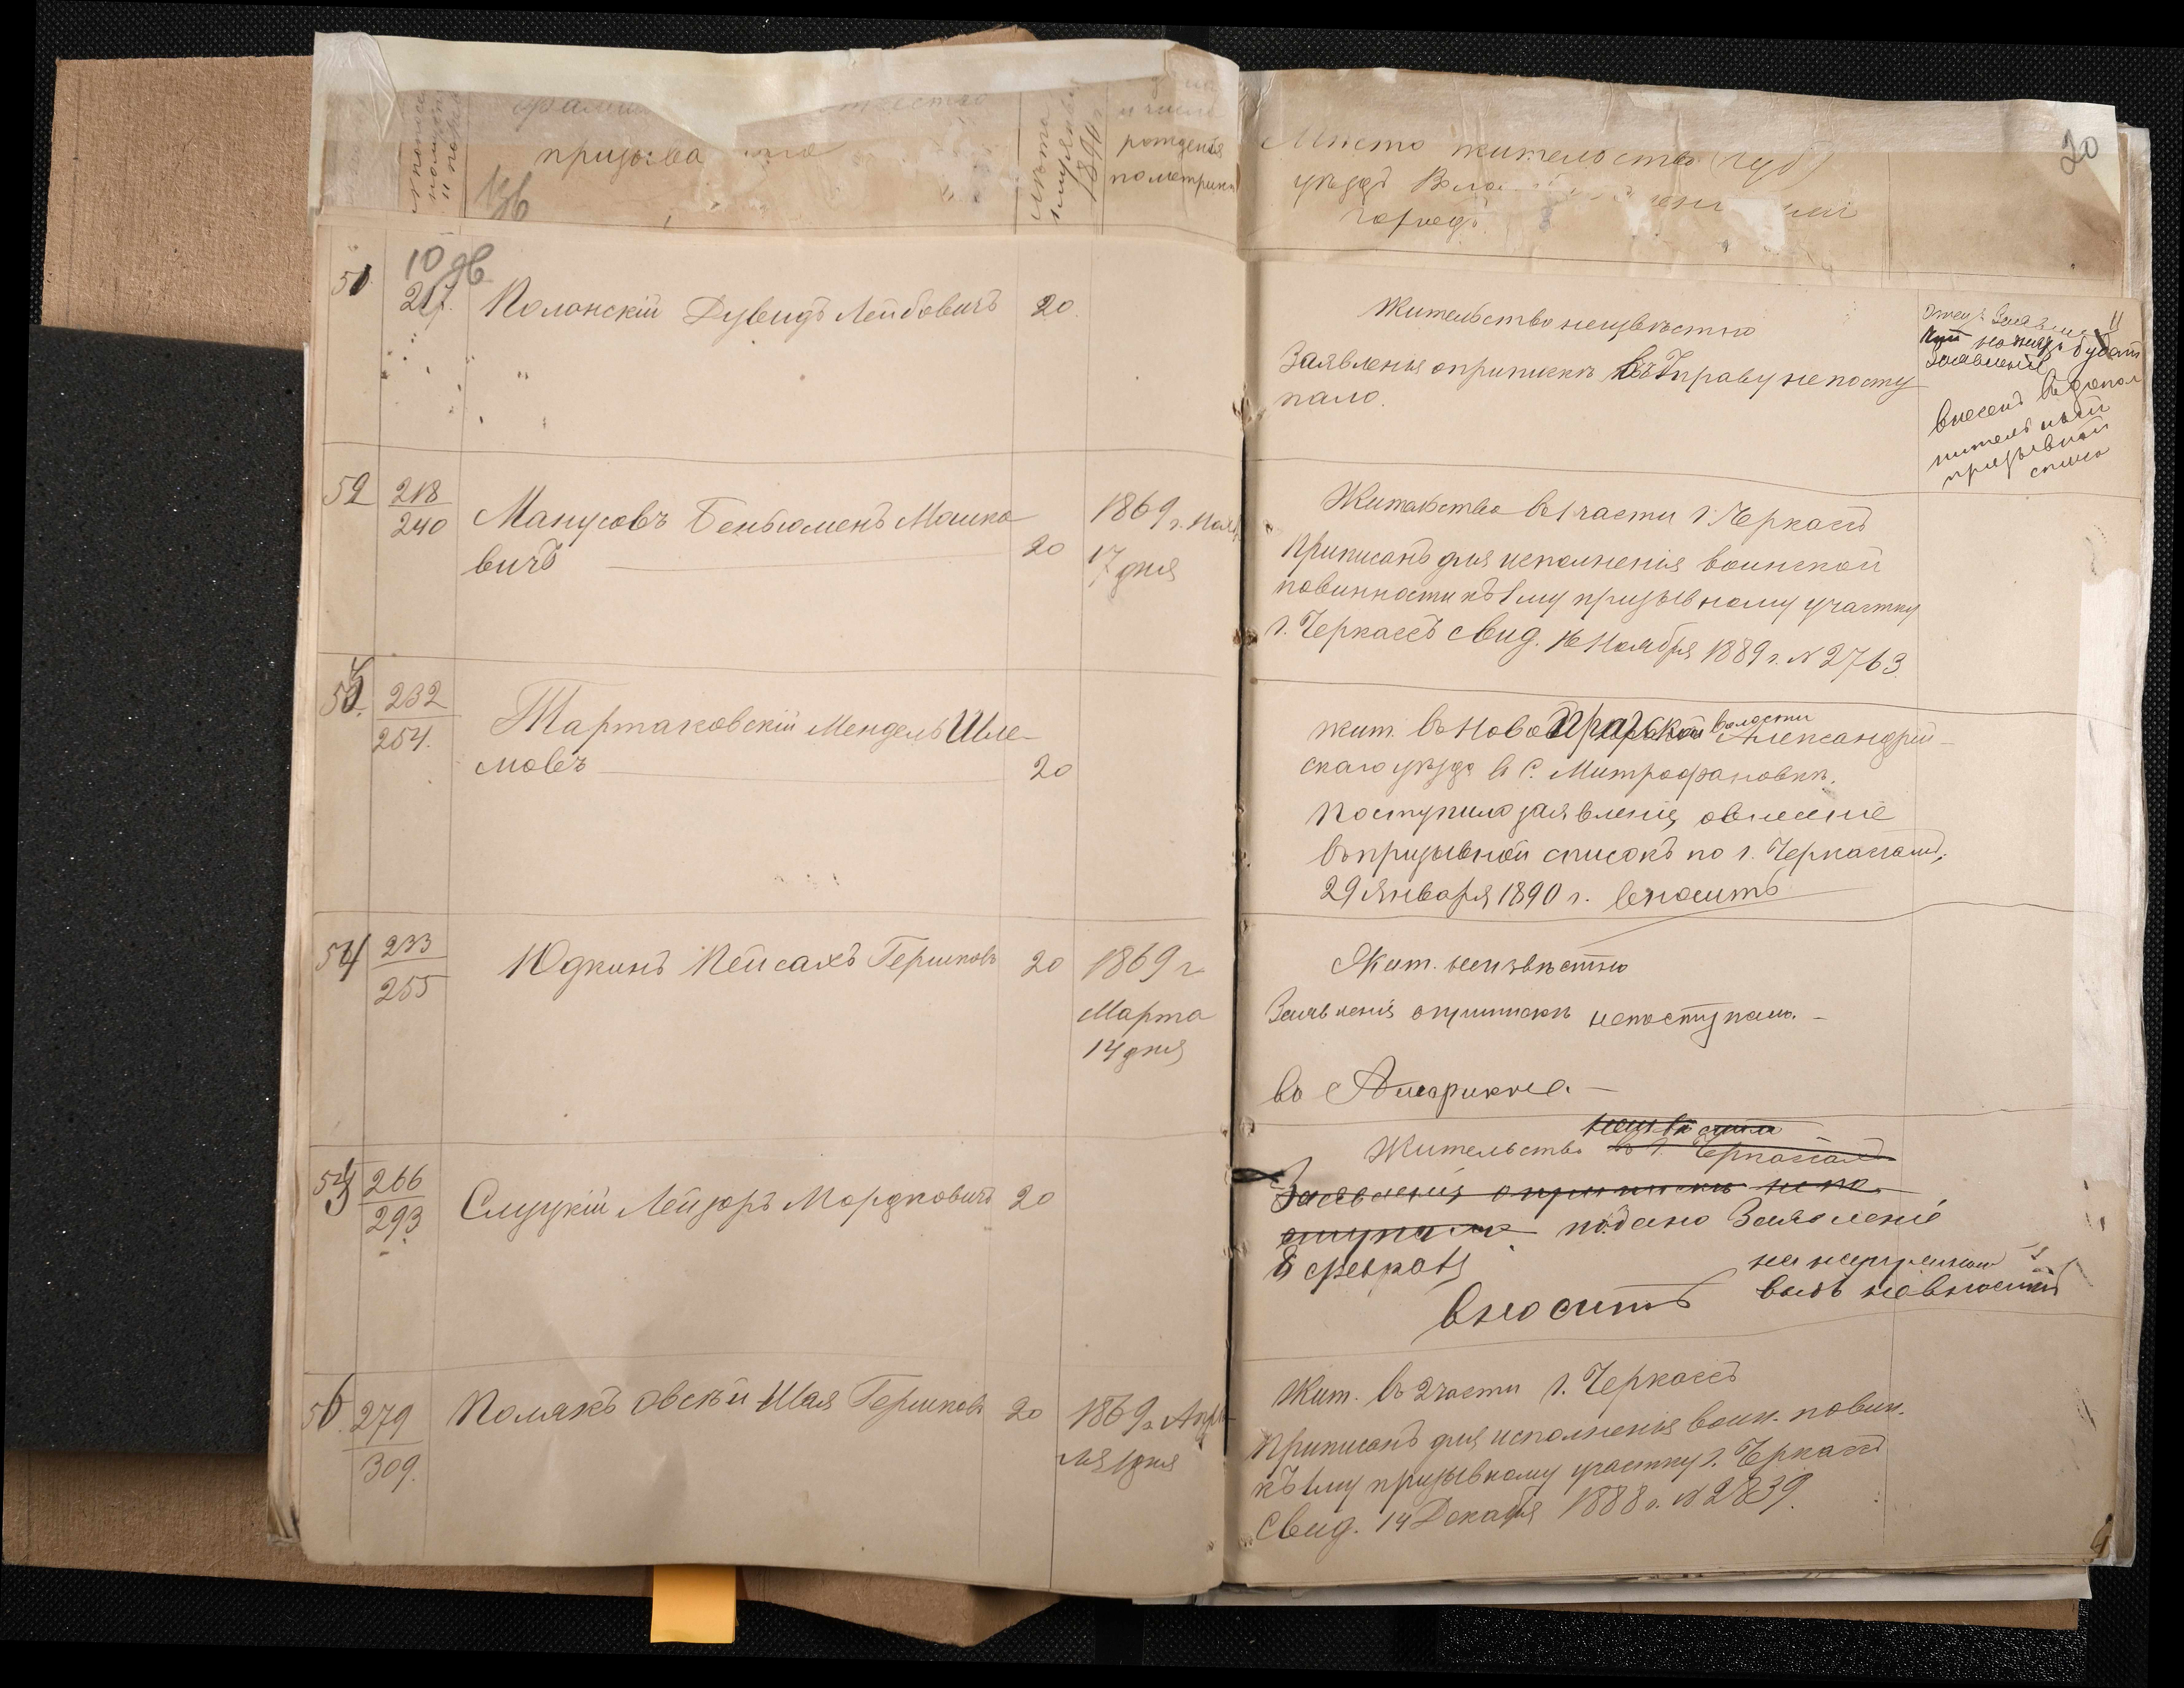 фами отчество
призыва
Лѣта
1890 г.
и число
рожденія
по метрикѣ
Мѣсто жительства (губ)
уѣздъ
городъ
20
51
10 дв
217.
Полонскій Дувидъ Лейбовичъ
20
Жительство неизвѣстно
Заявленія опрпискѣ въ Управу непосту
пало.
внесенъ въ допол
нительный
призывной
списо
52
218
240
Манусовъ Беньюменъ Мошко
вичъ
20
1869 г. Нояб
17 дня
Жительство в 1 части г. Черкассъ
Приписанъ для исполненія воинской
повинности къ 1 му призывному участку
г. Черкассъ свид. 16 Ноября 1889 г. № 2763.
53.
232
254.
Тартаковскій Мендель Шле-
мовъ
20
жит. въ Ново Прагской волости Александрій-
скаго уѣзда в С. Митрофановкѣ.
Поступило заявленіе, овнесеніе
въ призывной списокъ по г. Черкассамъ,
29 Января 1890 г. вносить
54
233
255
Юдкинъ Пейсахъ Гершковъ
20
1869 г
Марта
14 дня
Жит. неизвѣстно
Заявленія оприпискѣ непоступало. -
во Америкѣ -
55
266
293
Слуцкій Лейзоръ Мордковичъ
20
неизвѣстно
Жительство въ г. Черкассахъ
Заявленія оприпискѣ непо
ступало подано Заявленіе
8 февраля
вносить
невносить
56.
279
309.
Полякъ овскій Шая Гершковъ
20
1869 г. Апрѣ-
ля 1 дня
Жит. въ 2 части г. Черкассъ
Приписанъ для исполненія воин. повин.
къ 1 му призывному участку г. Черкассъ
Свид. 14 Декабря 1888 г. № 2839.